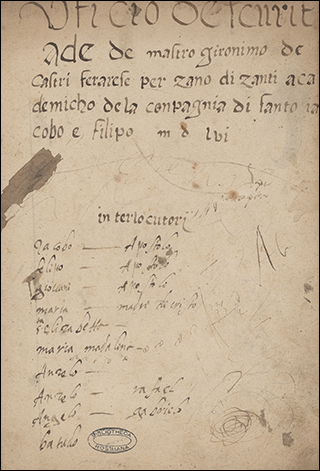 Uficio de scurit
ade de mastro gironimo de
castri ferarese per zano di zanti aca
demicho de la conpagnia di santo ia
cobo e filipo m d lvi
interlocutori
Jacobo — Apostolo
filipo — Apostolo
giovani — Apostolo
maria — madre de cristo
elizabetta —
maria madalena —
Angelo —
Angelo — rafael
Angelo — gabrielo
BIBLIOTHECA